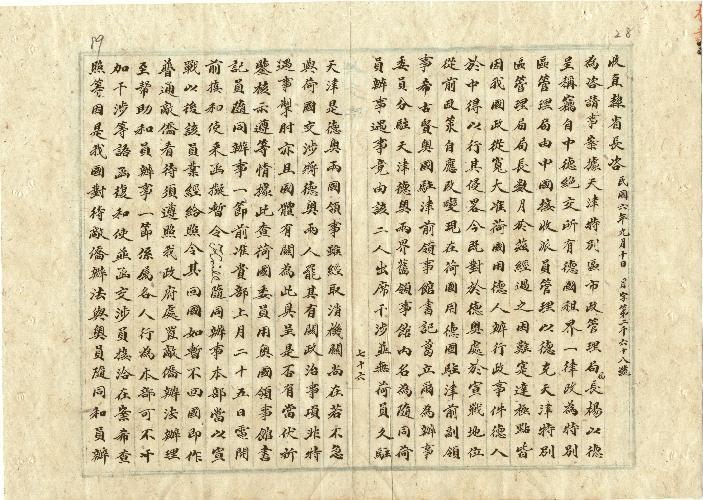 28
收直隸省長咨 民國六年九月十日 字第二千六十八號
為咨請事案據天津特別區市政管理局局長楊以德
呈稱竊自中德絕交所有德國租界一律改為特別
區管理局由中國接收派員管理以德充天津特別
區管理局局長數月於茲經過之困難寔達極點皆
因我國政從寬大准荷國用德人辦行政事件德人
於中得以行其侵畧今既對於德奧處於宣戰地位
從前政策自應改變現在荷國用德國駐津前副領
事希古賢奧國駐津前領事館書記葛立爾為辦事
委員分駐天津德奧兩界舊領事館內名為隨同荷
員辦事遇事竟由該二人出席干涉並無荷員久駐
七十六
天津是德奧兩國領事雖經取消機關尚在若不急
與荷國交涉將德奧兩人罷其有關政治事項非特
遇事掣肘亦且國體有關為此具呈是否有當伏祈
鑒核示遵等情據此查荷國委員用奧國領事館書
記員隨同辦事一節前准貴部上月二十五日電開
前旗和使來函擬暫令 隨同辦事本部當以宣
戰以後該員業經給照令其回國如暫不回國即作
普通敵僑看待須遵照我政府處置敵僑辦法辦理
至幫助和員辦事一節係屬各人行為本部可不干
加干涉等語函復和使並函交涉員接洽在案希查
照等因是我國對待敵僑辦法與奧員隨同和員辦
19